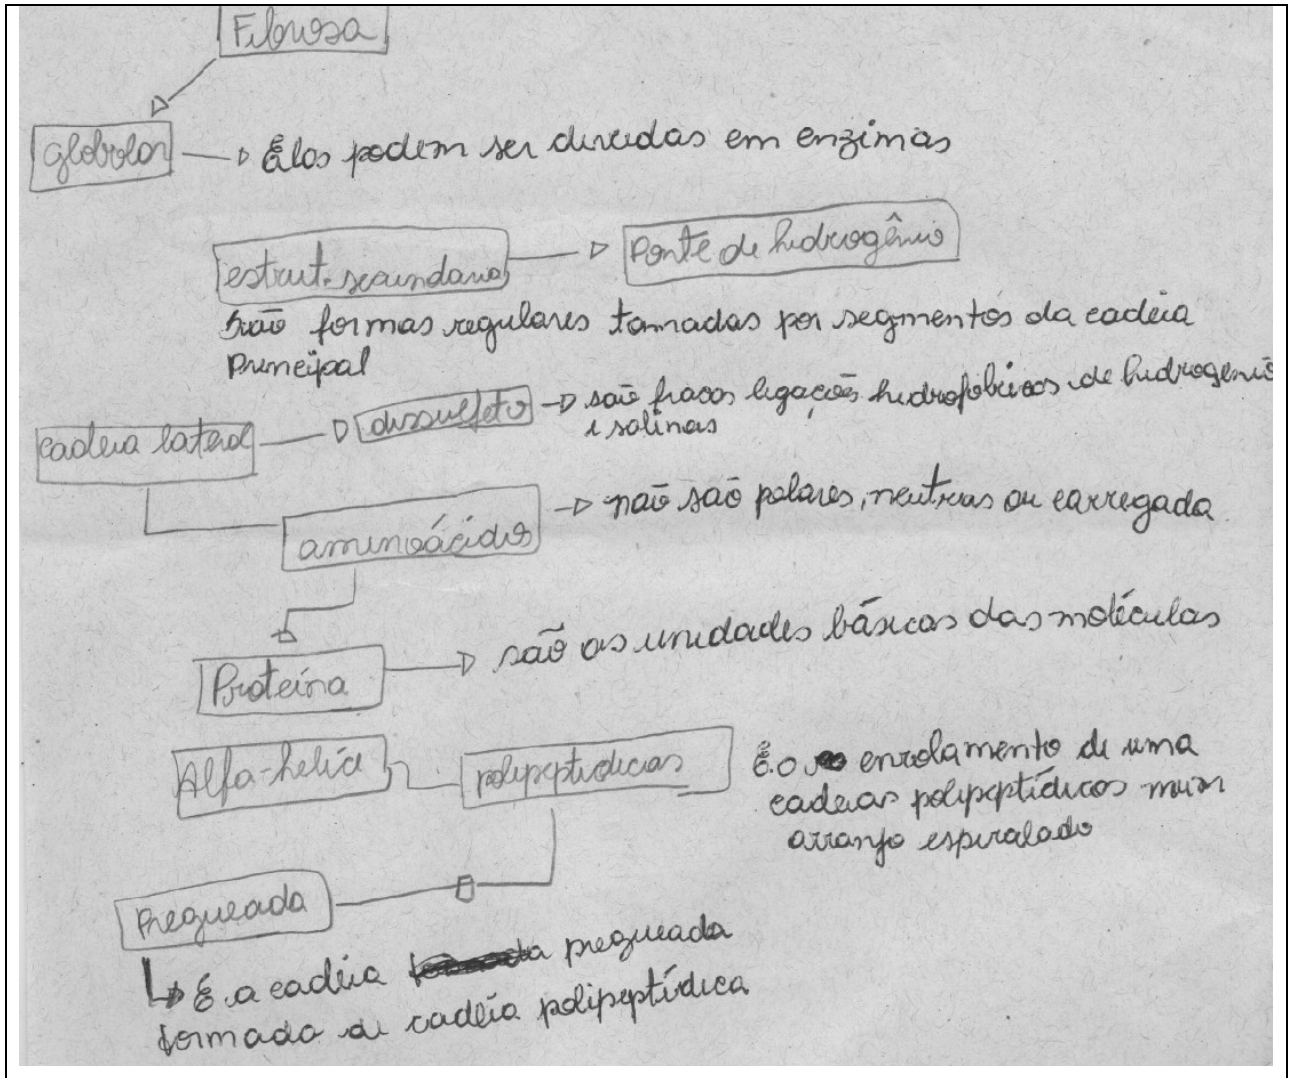 Fibrosa
globolar
Elas podem ser dividas em enzimas
estrut. secundaria
Ponte de hidrogênio
São formas regulares tomadas por segmentos da cadeia
Principal
cadeia lateral
dissulfeto
são fracas ligações hidrofóbicas de hidrogenio
e salinas
aminoácidos
não são polares, neutras ou carregada
Proteína
são as unidades básicas das moléculas
Alfa-helice
polipeptidicas
É o enrolamento de uma
cadeias polipeptídicos num
arranjo espiralado
Pregueada
É a cadeia pregueada
formada de cadeia polipeptídica